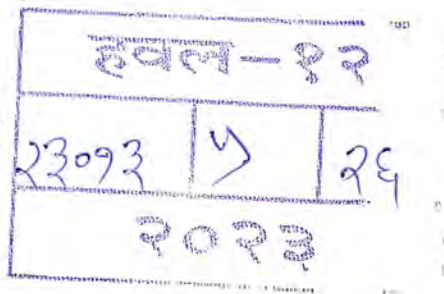 हवल-१२
२३०१३ ५ २६
२०२३